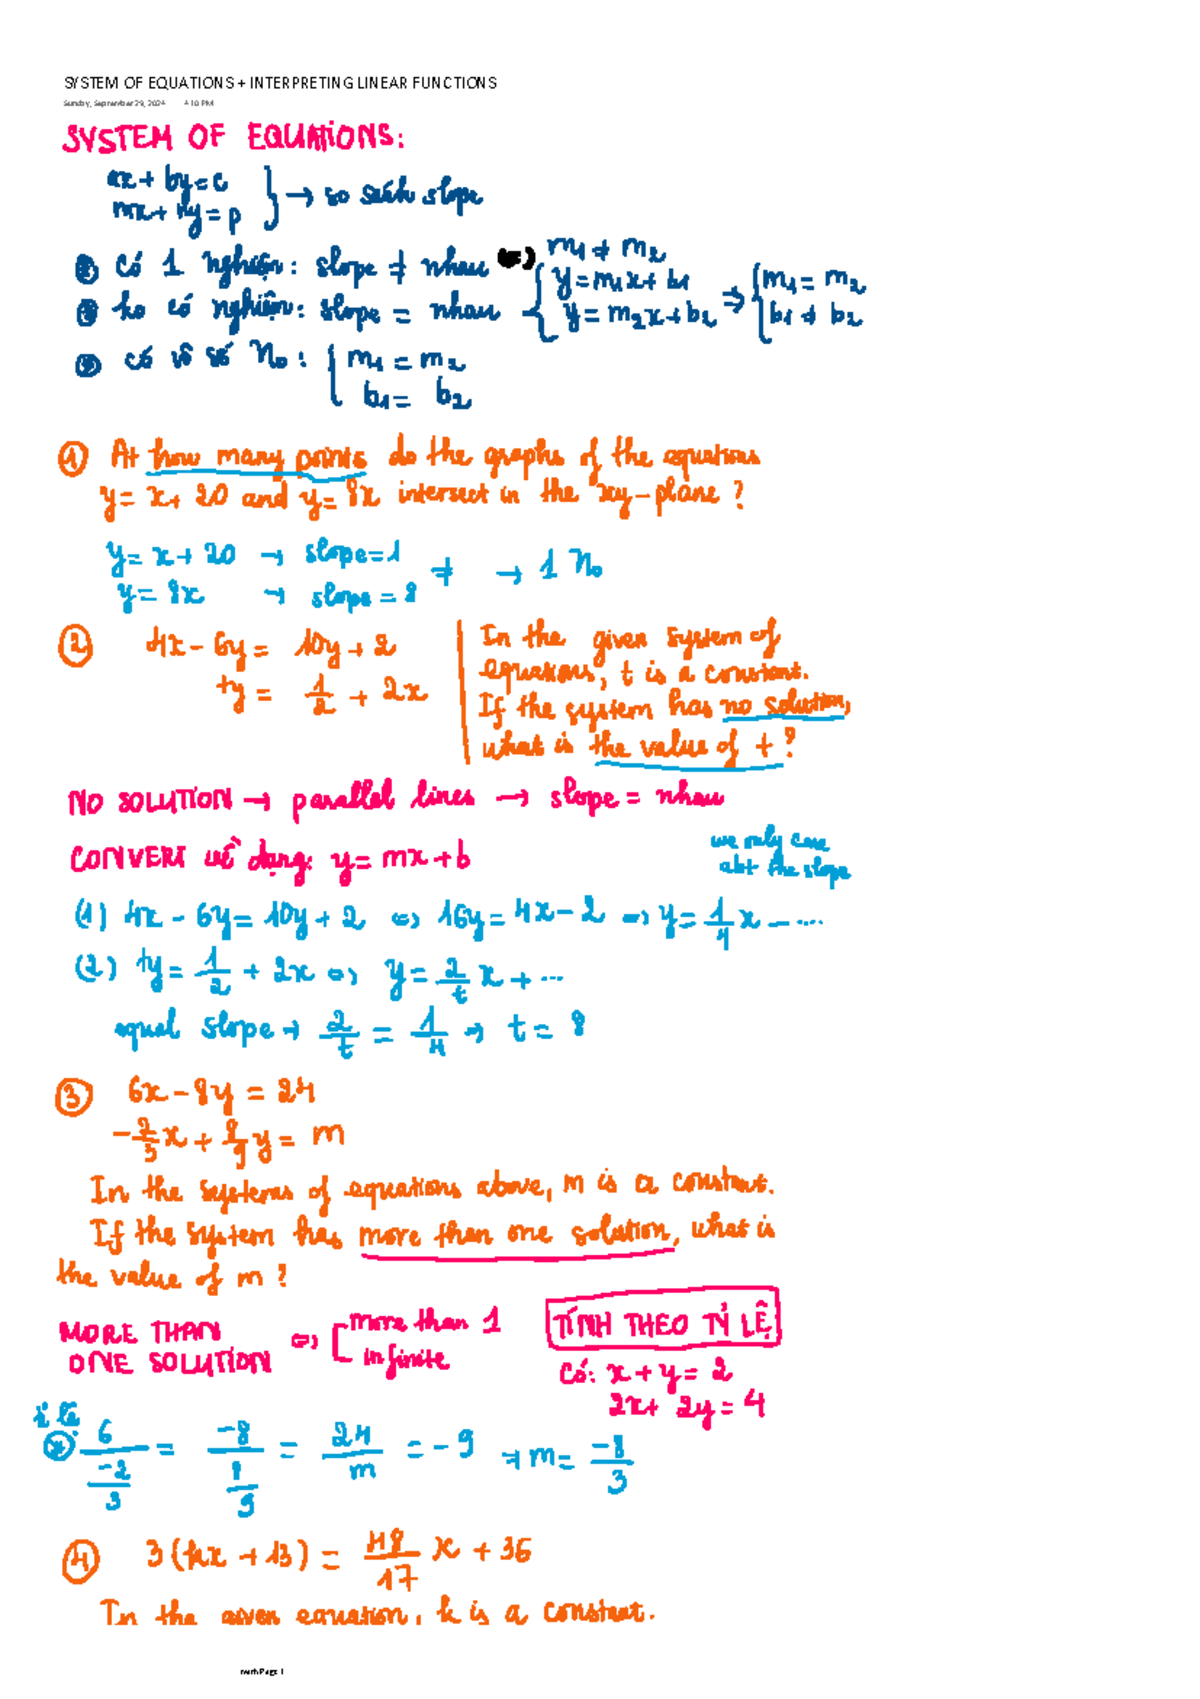 SYSTEM OF EQUATIONS + INTERPRETING LINEAR FUNCTIONS
Sunday, September 29, 2024 4:10 PM
SYSTEM OF EQUATIONS:
ax + by = c
mx + ny = p } → so sánh slope
① có 1 nghiệm: slope ≠ nhau (=) m₁ ≠ m₂
② ko có nghiệm: slope = nhau { y = m₁x + b₁ y = m₂x + b₂ ⇒ { m₁ = m₂ b₁ ≠ b₂
③ có vô số No: { m₁ = m₂
b₁ = b₂
① At how many points do the graphs of the equations
y = x + 20 and y = 8x intersect in the xy-plane?
y = x + 20 → slope = 1
≠ → 1 No
y = 8x → slope = 8
② 4x - 6y = 10y + 2
ty = 1/2 + 2x
In the given system of
equations, t is a constant.
If the system has no solution,
what is the value of t?
NO SOLUTION → parallel lines → slope = nhau
CONVERT về dạng: y = mx + b
we only care
abt the slope
(1) 4x - 6y = 10y + 2 ⇔ 16y = 4x - 2 ⇒ y = 1/4 x - ....
(2) ty = 1/2 + 2x ⇔ y = 2/t x + ...
equal slope → 2/t = 1/4 ⇒ t = 8
③ 6x - 8y = 24
-2/3 x + 8/9 y = m
In the systems of equations above, m is a constant.
If the system has more than one solution, what is
the value of m?
MORE THAN
ONE SOLUTION ⇔ [ more than 1
infinite
TÍNH THEO TỶ LỆ
Có: x + y = 2
2x + 2y = 4
6/(-2/3) = -8/(8/9) = 24/m = -9 → m = -8/3
④ 3(kx + 13) = 48/17 x + 36
In the given equation, k is a constant.
math Page 1